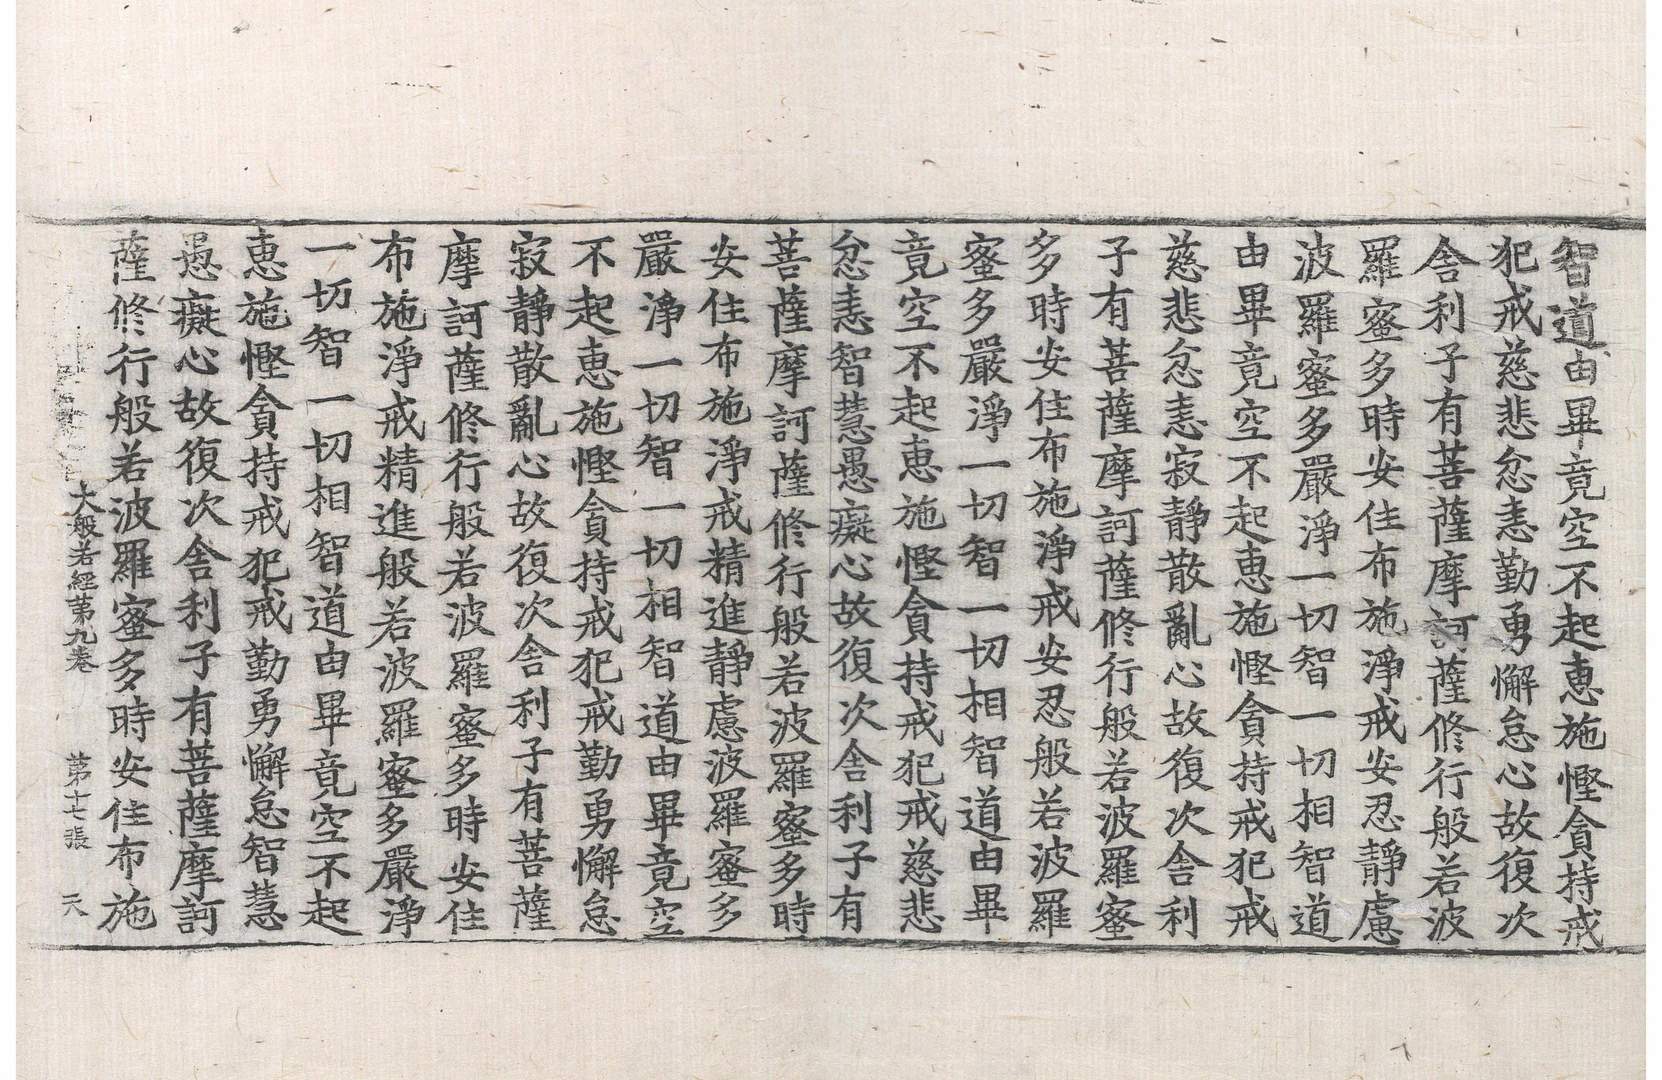 智道由畢竟空不起惠施慳貪持戒
犯戒慈悲忿恚勤勇懈怠心故復次
舎利子有菩薩摩訶薩修行般若波
羅蜜多時安住布施淨戒安忍靜慮
波羅蜜多嚴淨一切智一切相智道
由畢竟空不起惠施慳貪持戒犯戒
慈悲忿恚寂靜散亂心故復次舎利
子有菩薩摩訶薩修行般若波羅蜜
多時安住布施淨戒安忍般若波羅
蜜多嚴淨一切智一切相智道由畢
竟空不起惠施慳貪持戒犯戒慈悲
忿恚智慧愚癡心故復次舎利子有
菩薩摩訶薩修行般若波羅蜜多時
安住布施淨戒精進靜慮波羅蜜多
嚴淨一切智一切相智道由畢竟空
不起惠施慳貪持戒犯戒勤勇懈怠
寂靜散亂心故復次舎利子有菩薩
摩訶薩修行般若波羅蜜多時安住
布施淨戒精進般若波羅蜜多嚴淨
一切智一切相智道由畢竟空不起
惠施慳貪持戒犯戒勤勇懈怠智慧
愚癡心故復次舎利子有菩薩摩訶
薩修行般若波羅蜜多時安住布施
大般若経第九巻 第十七張